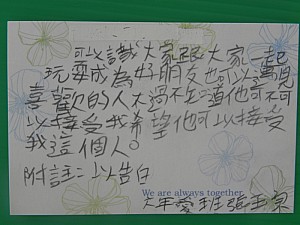 可以識大家跟大家一起
玩耍成為好朋友也可以遇見
喜歡的人不過不知道他可不可
以接受我希望他可以接受
我這個人。
附註:以告白
We are always together
六年愛班張玉